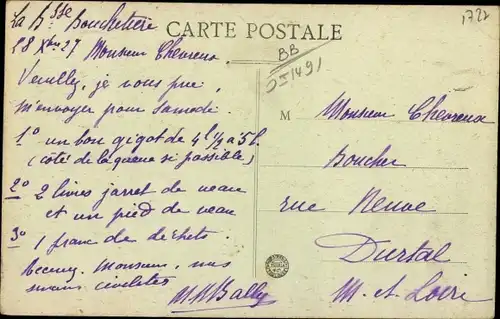 La Bsse Bouchetière
CARTE POSTALE
1722
28 Xbre 27 Monsieur Chevreux
BB
Veuillez, je vous prie,
m'envoyer pour Samedi
1° un bon gigot de 4 l 1/2 à 5 l.
(côté de la queue si possible)
2° 2 livres jarret de veau
et un pied de veau
3° 1 franc de déchets.
Recevez, Monsieur, nos
M
Monsieur Chevreux
Boucher
rue Neuve
Durtal
M. et Loire